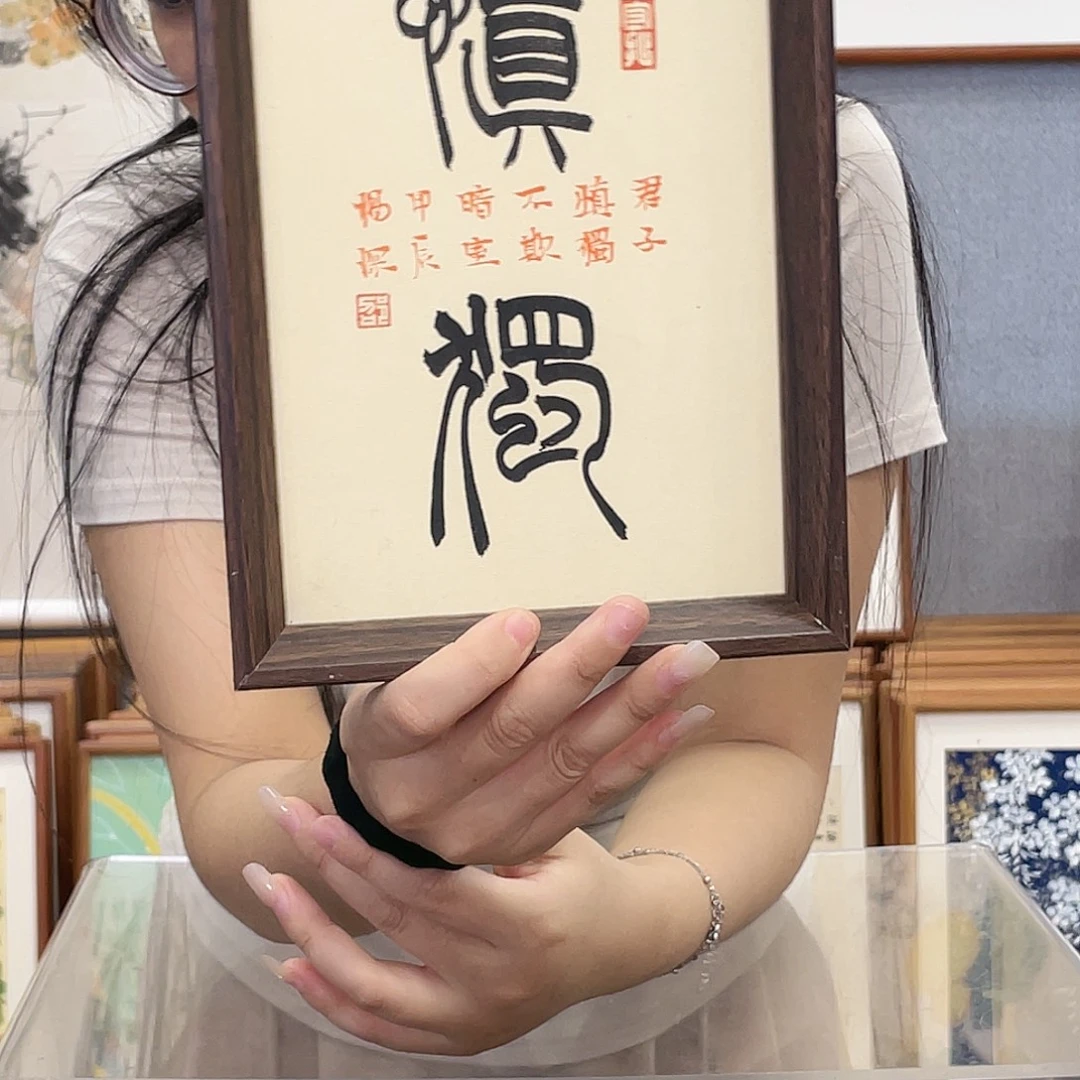 慎
君子
慎獨
不欺
暗室
甲辰
楊
獨